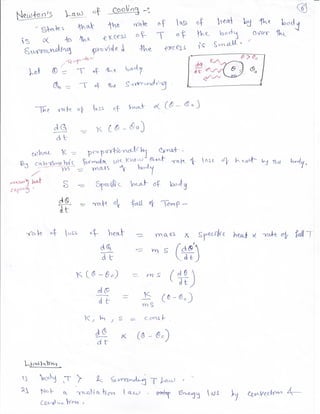 Newton's Law of Cooling -:
States that the rate of loss of heat by the body
is ∝ to the excess of T of the body over the
surrounding provided the excess is small.
Let θ = T of the body
θ₀ = T of the surrounding
θ > θ₀
dQ/dt
θ
θ₀
The rate of loss of heat ∝ (θ - θ₀)
dQ/dt = K (θ - θ₀)
where K = proportionality const.
By calorimetric formula we know that rate of loss of heat by the body,
m = mass of body
S = Specific heat of body
dθ/dt = rate of fall of Temp -
rate of loss of heat = mass x specific heat x rate of fall T
dQ/dt = m s (dθ/dt)
K (θ - θ₀) = m s (dθ/dt)
dθ/dt = K/ms (θ - θ₀)
K, m, s = const
dθ/dt ∝ (θ - θ₀)
Limitation
1) body T > & surrounding T low.
2) Not a radiation law. Energy loss by convection &
conduction.